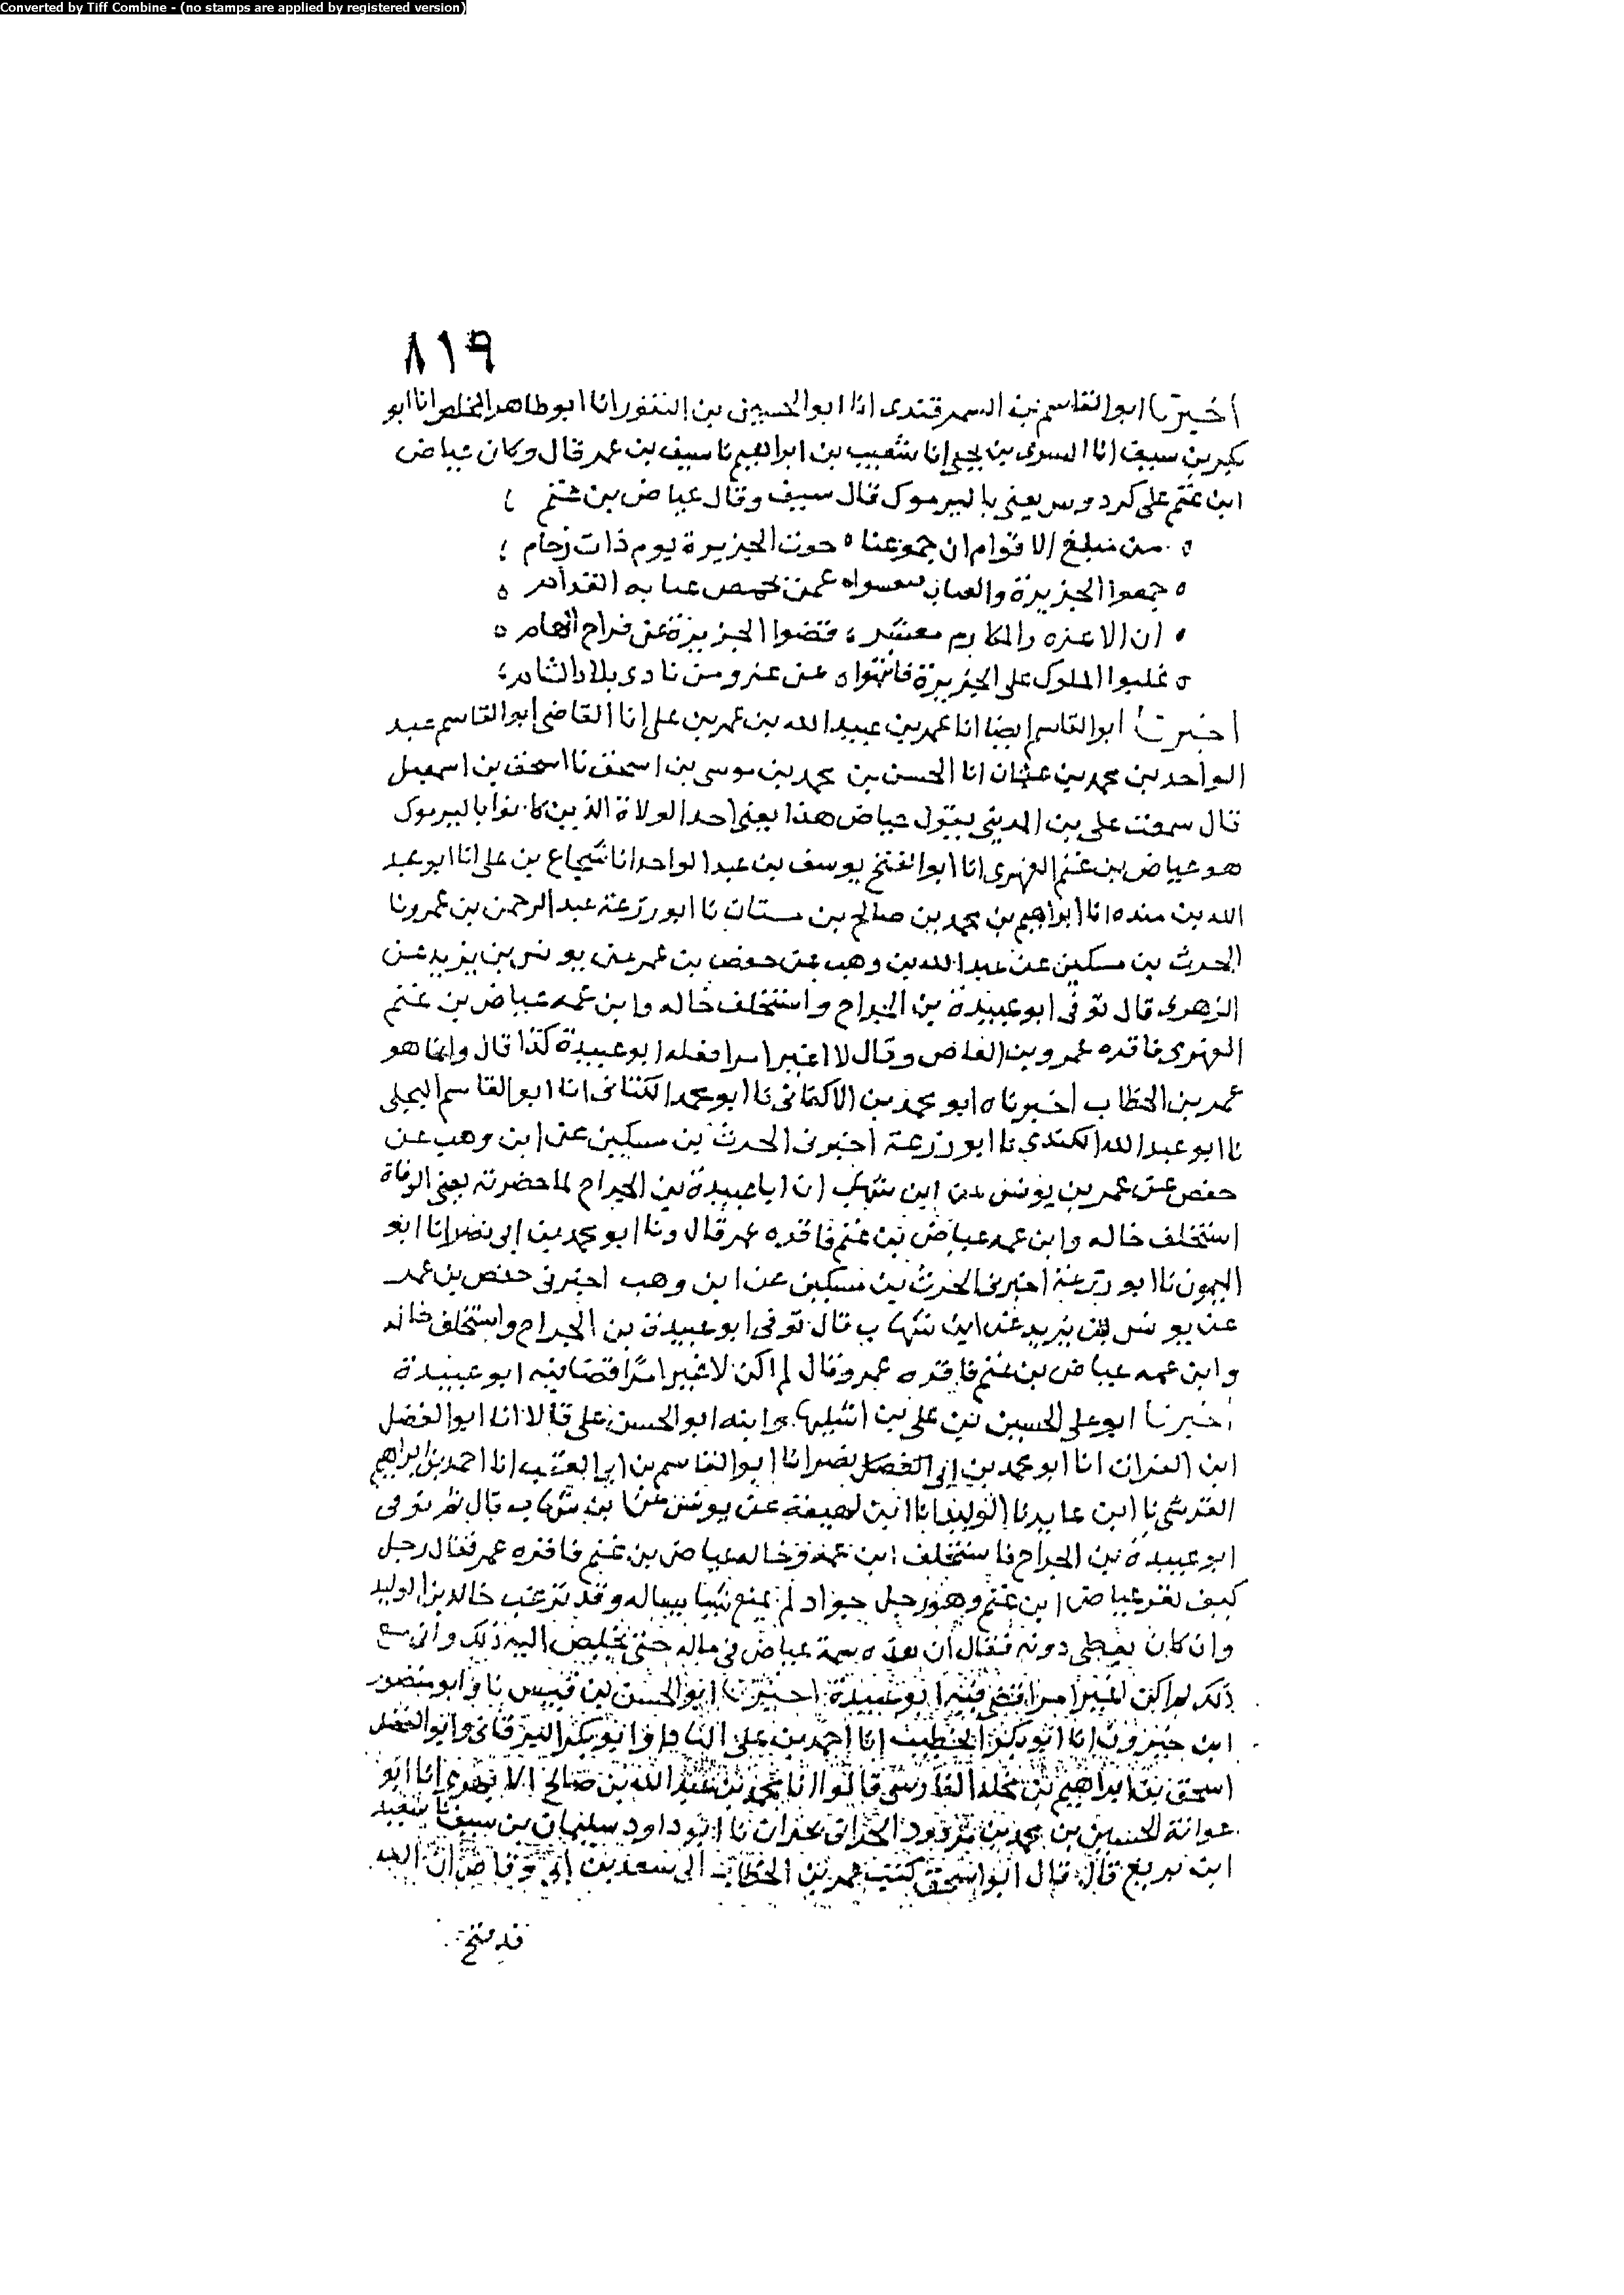 Converted by Tiff Combine - (no stamps are applied by registered version)
٨١٩
اخبرنا ابو القاسم بن السمرقندى انا ابو الحسين بن النقور انا ابو طاهر المخلص انا ابو
بكر بن سيف انا السرى بن يحيى انا شعيب بن ابراهيم نا سيف بن عمر قال وكان عياض
ابن غنم على كردوس يعنى باليرموك قال سيف وقال عياض بن غنم
من مبلغ الاقوام ان جموعنا حوت الجزيرة يوم ذات زحام
جمعوا الجزيرة والغياب عمن بحمص القدام
ان الاعزه والاكارم معشر فضوا الجزيرة عن فراح الهام
غلبوا الملوك على الجزيرة فانتهوا عن غزو من نادى بلاد الشام
اخبرنا ابو القاسم ايضا انا عمر بن عبيد الله بن عمر بن على انا القاضى ابو القاسم عبد
الواحد بن محمد بن عثمان انا الحسن بن محمد بن موسى بن اسحق نا اسحق بن اسمعيل
قال سمعت على بن المدينى يقول عياض هذا يعنى احد الولاة الذين كانوا باليرموك
هو عياض بن غنم الفهرى انا ابو الفتح يوسف بن عبد الواحد انا شجاع بن على انا ابو عبد
الله بن منده انا ابراهيم بن محمد بن صالح بن سنان نا ابو زرعة عبد الرحمن بن عمرو نا
الحرث بن مسكين عن عبد الله بن وهب عن حفص بن عمر عن يونس بن يزيد عن
الزهرى قال توفى ابو عبيدة بن الجراح واستخلف خاله وابن عمه عياض بن غنم
الفهرى فاقره عمرو بن العاص وقال لا اغير امرا فعله ابو عبيدة كذا قال وانما هو
عمر بن الخطاب اخبرناه ابو محمد بن الاكفانى نا ابو محمد الكتانى انا ابو القاسم البجلى
نا ابو عبد الله الكندى نا ابو زرعة اخبرنى الحرث بن مسكين عن ابن وهب عن
حفص عن عمر بن يونس عن ابن شهاب ان ابا عبيدة بن الجراح لما حضرته يعنى الوفاة
استخلف خاله وابن عمه عياض بن غنم فاقره عمر قال ونا ابو محمد بن ابى نصر انا ابو
الميمون نا ابو زرعة اخبرنى الحرث بن مسكين عن ابن وهب اخبرنى حفص بن عمر
عن يونس بن يزيد عن ابن شهاب قال توفى ابو عبيدة بن الجراح واستخلف خاله
وابن عمه عياض بن غنم فاقره عمر وقال لم اكن لاغير امرا قضا فيه ابو عبيدة
اخبرنا ابو على الحسين بن على بن اشليها وابنه ابو الحسن على قالا انا ابو الفضل
ابن الفرات انا ابو محمد بن ابى نصر انا ابو القاسم بن ابى العقب انا احمد بن ابراهيم
القرشى نا ابن عايد نا الوليد نا ابن لهيعة عن يونس عن ابن شهاب قال ثم توفى
ابو عبيدة بن الجراح فاستخلف ابن عمه وخاله عياض بن غنم فاقره عمر فقال رجل
كيف نقر عياض ابن غنم وهو رجل جواد لم يمنع شيا يساله وقد نزعت خالد بن الوليد
وان كان يعطى دونه فقال ان هذه سمة عياض فى ماله حتى يخلص اليه ذلك وانى مع
ذلك لم اكن لاغير امرا قضى فيه ابو عبيدة اخبرنا ابو الحسن بن قبيس نا وابو منصور
ابن خيرون انا ابو بكر الخطيب انا احمد بن على البادا وابو بكر البرقانى وابو الفضل
اسحق بن ابراهيم بن مخلد الفارسى قالوا انا محمد بن عبد الله بن صالح الابهرى انا ابو
عروانة الحسين بن محمد بن مودود الحرانى بحران نا ابو داود سليمان بن سيف نا سعيد
ابن بزيع قال قال ابن اسحق كتب عمر بن الخطاب الى سعد بن ابى وقاص ان الله
قد فتح